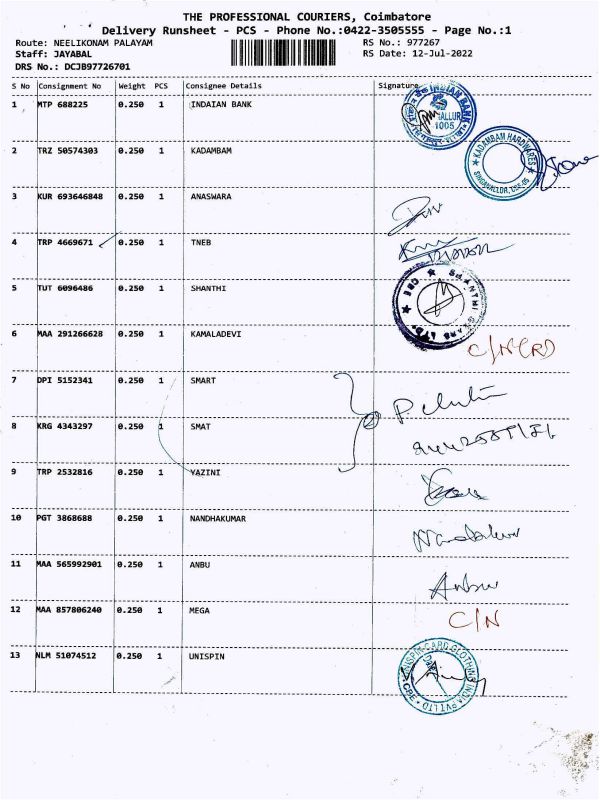 THE PROFESSIONAL COURIERS, Coimbatore
Delivery Runsheet - PCS - Phone No.:0422-3505555 - Page No.:1
Route: NEELIKONAM PALAYAM RS No.: 977267
Staff: JAYABAL RS Date: 12-Jul-2022
DRS No.: DCJB97726701
S No Consignment No Weight PCS Consignee Details Signature
1 MTP 688225 0.250 1 INDAIAN BANK
INDIAN BANK
1005
2 TRZ 50574303 0.250 1 KADAMBAM
KADAMBAM HARDWARES
SINGANALLUR, CBE-05
3 KUR 693646848 0.250 1 ANASWARA
4 TRP 4669671 0.250 1 TNEB
5 TUT 6096486 0.250 1 SHANTHI
SHANTHI GEARS LTD.
6 MAA 291266628 0.250 1 KAMALADEVI
C/N (RD)
7 DPI 5152341 0.250 1 SMART
8 KRG 4343297 0.250 1 SMAT
9 TRP 2532816 0.250 1 YAZINI
10 PGT 3868688 0.250 1 NANDHAKUMAR
11 MAA 565992901 0.250 1 ANBU
Anbu
12 MAA 857806240 0.250 1 MEGA
C/N
13 NLM 51074512 0.250 1 UNISPIN
UNISPIN CARD CLOTHING INDIA PVT LTD
CBE